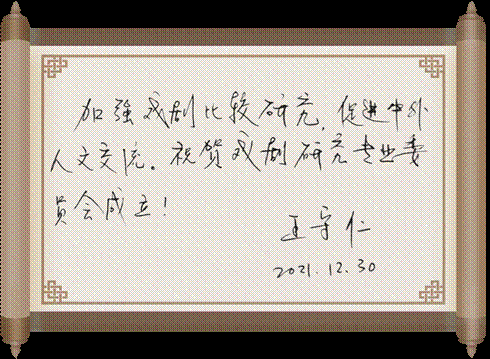 加强戏剧比较研究，促进中外
人文交流。祝贺戏剧研究专业委
员会成立！
王守仁
2021.12.30